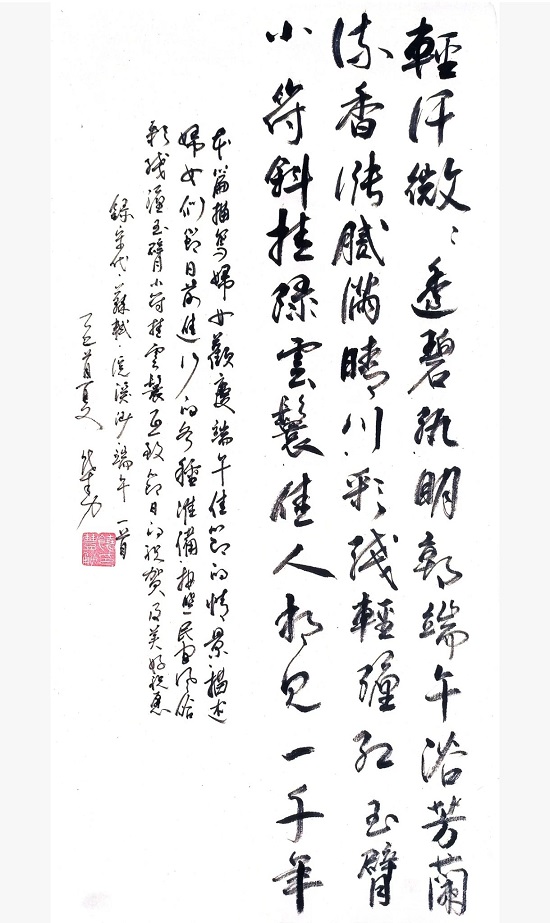 輕汗微々透碧紈明朝端午浴芳蘭
流香漲膩滿晴川彩綫輕纏紅玉臂
小符斜挂綠雲鬟佳人相見一千年
本篇描寫婦女歡慶端午佳節的情景描述
婦女們節日前進行的各種准備按照民間風俗
彩綫纏玉臂小符挂雲鬟互致節日的祝賀及美好祝愿
錄宋代蘇軾浣溪沙端午一首
乙巳首夏